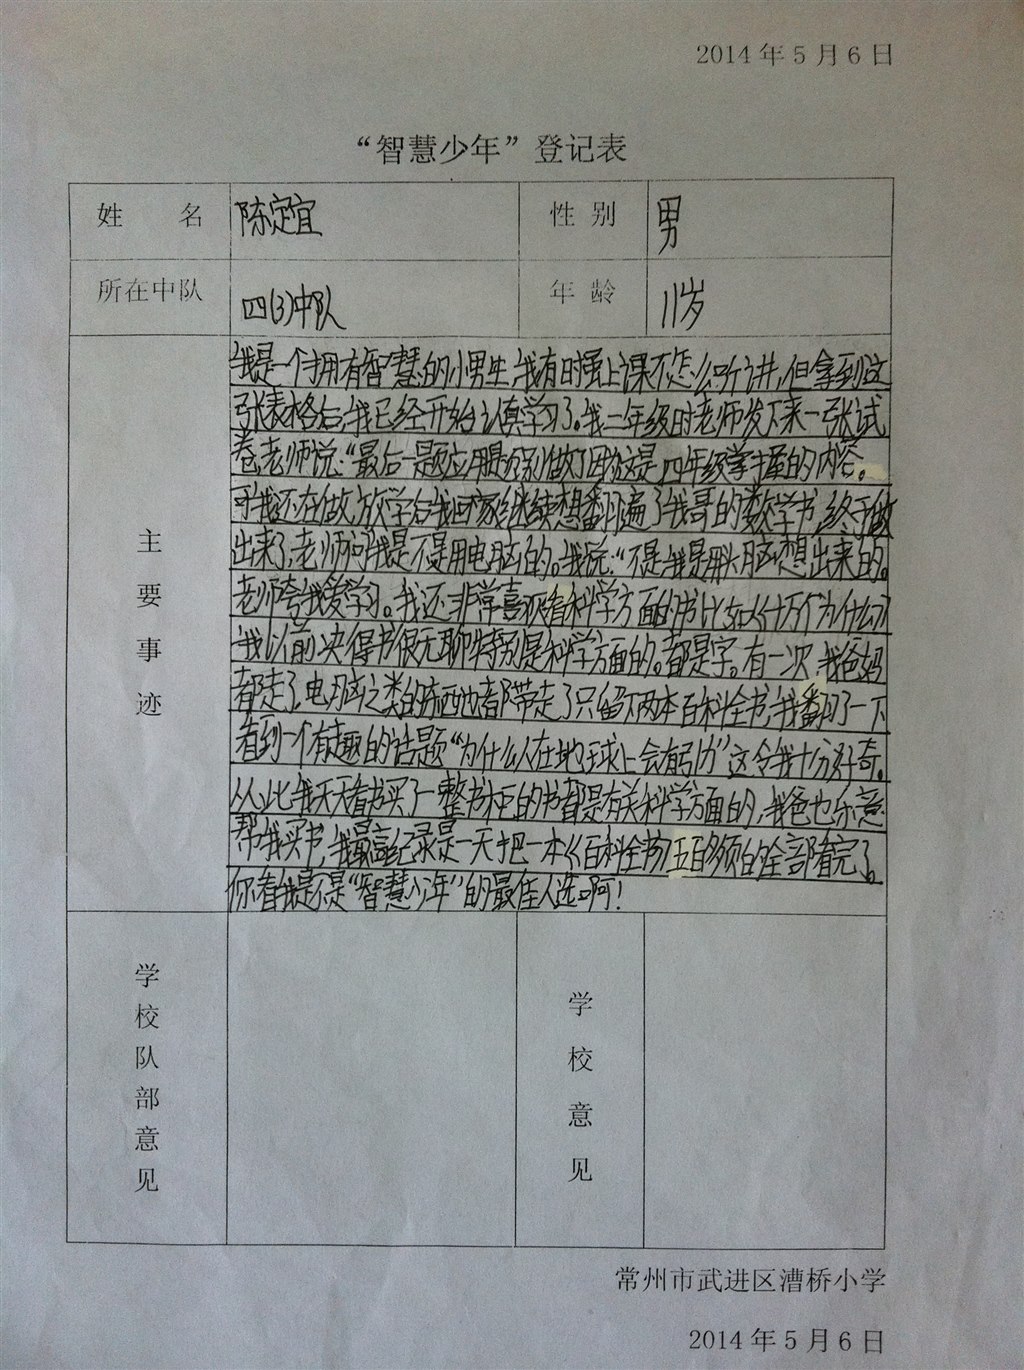 2014年5月6日
“智慧少年”登记表
姓 名 陈定宜 性 别 男
所在中队 四(3)中队 年 龄 11岁
主要事迹
我是一个拥有智慧的小男生,我有时虽上课不怎么听讲,但拿到这
张表格后,我已经开始认真学习了。我二年级时老师发下来一张试
卷,老师说:“最后一题应用题别做了,这是四年级掌握的内容。
可我还在做,放学后我回家继续想翻遍了我哥的数学书,终于做
出来了,老师问我是不是用电脑的。我说:“不是我是用头脑想出来的。
老师夸我爱学习。我还非常喜欢看科学方面的书比如《十万个为什么》
我以前决得书很无聊特别是科学方面的。都是字。有一次,我爸妈
都走了,电脑之类的东西也都带走了只留下两本百科全书,我翻了一下
看到一个有趣的话题“为什么人在地球上会有引力”这令我十分好奇。
从此我天天看书买了一整书柜的书都是有关科学方面的,我爸也乐意
帮我买书,我最高纪录是一天把一本《百科全书》五百多页的全部看完了。
你看我是不是“智慧少年”的最佳人选啊!
学校队部意见
学校意见
常州市武进区漕桥小学
2014年5月6日